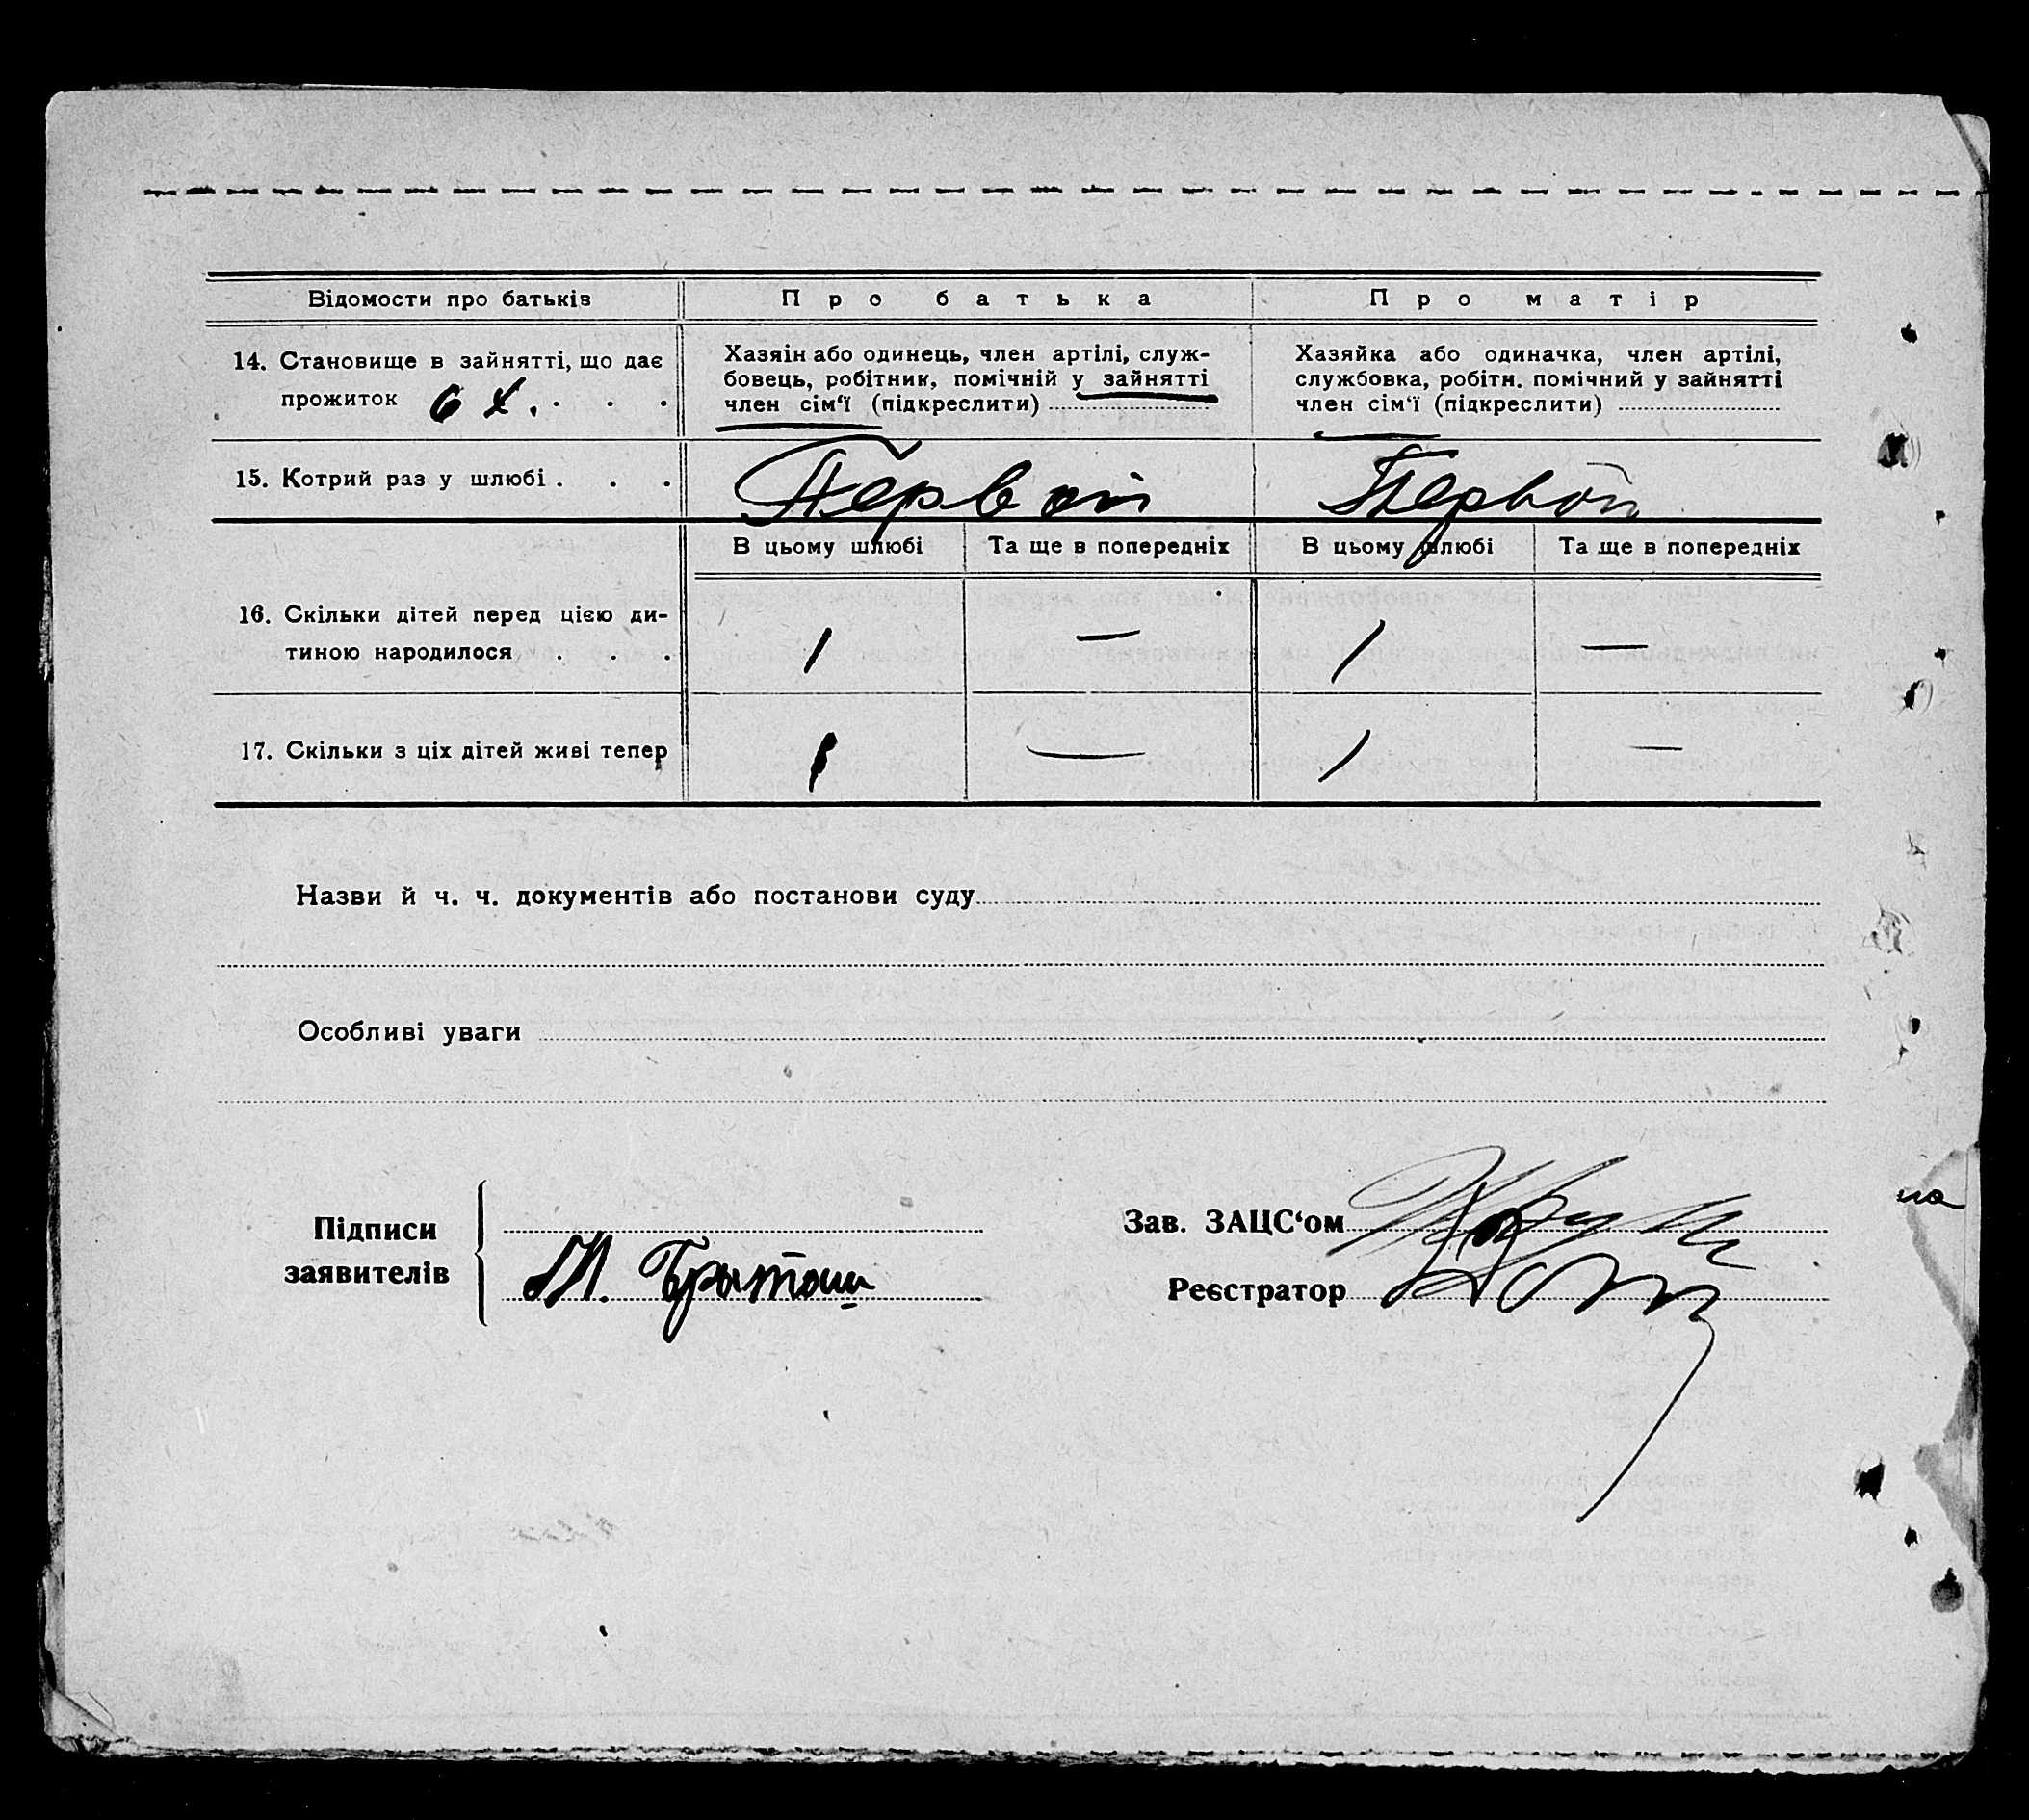 Відомости про батьків
Про батька
Про матір
14. Становище в зайнятті, що дає
прожиток
Хазяін або одинець, член артілі, служ-
бовець, робітник, помічній у зайнятті
член сім‘ї (підкреслити)
Хазяйка або одиначка, член артілі,
службовка, робітн. помічний у зайнятті
член сім‘ї (підкреслити)
15. Котрий раз у шлюбі
Первой
Первой
В цьому шлюбі
Та ще в попередніх
В цьому шлюбі
Та ще в попередніх
16. Скільки дітей перед цією ди-
тиною народилося
1
—
1
—
17. Скільки з ціх дітей живі тепер
1
—
1
—
Назви й ч. ч. документів або постанови суду
Особливі уваги
Підписи
заявителів
Зав. ЗАЦС‘ом
Реєстратор